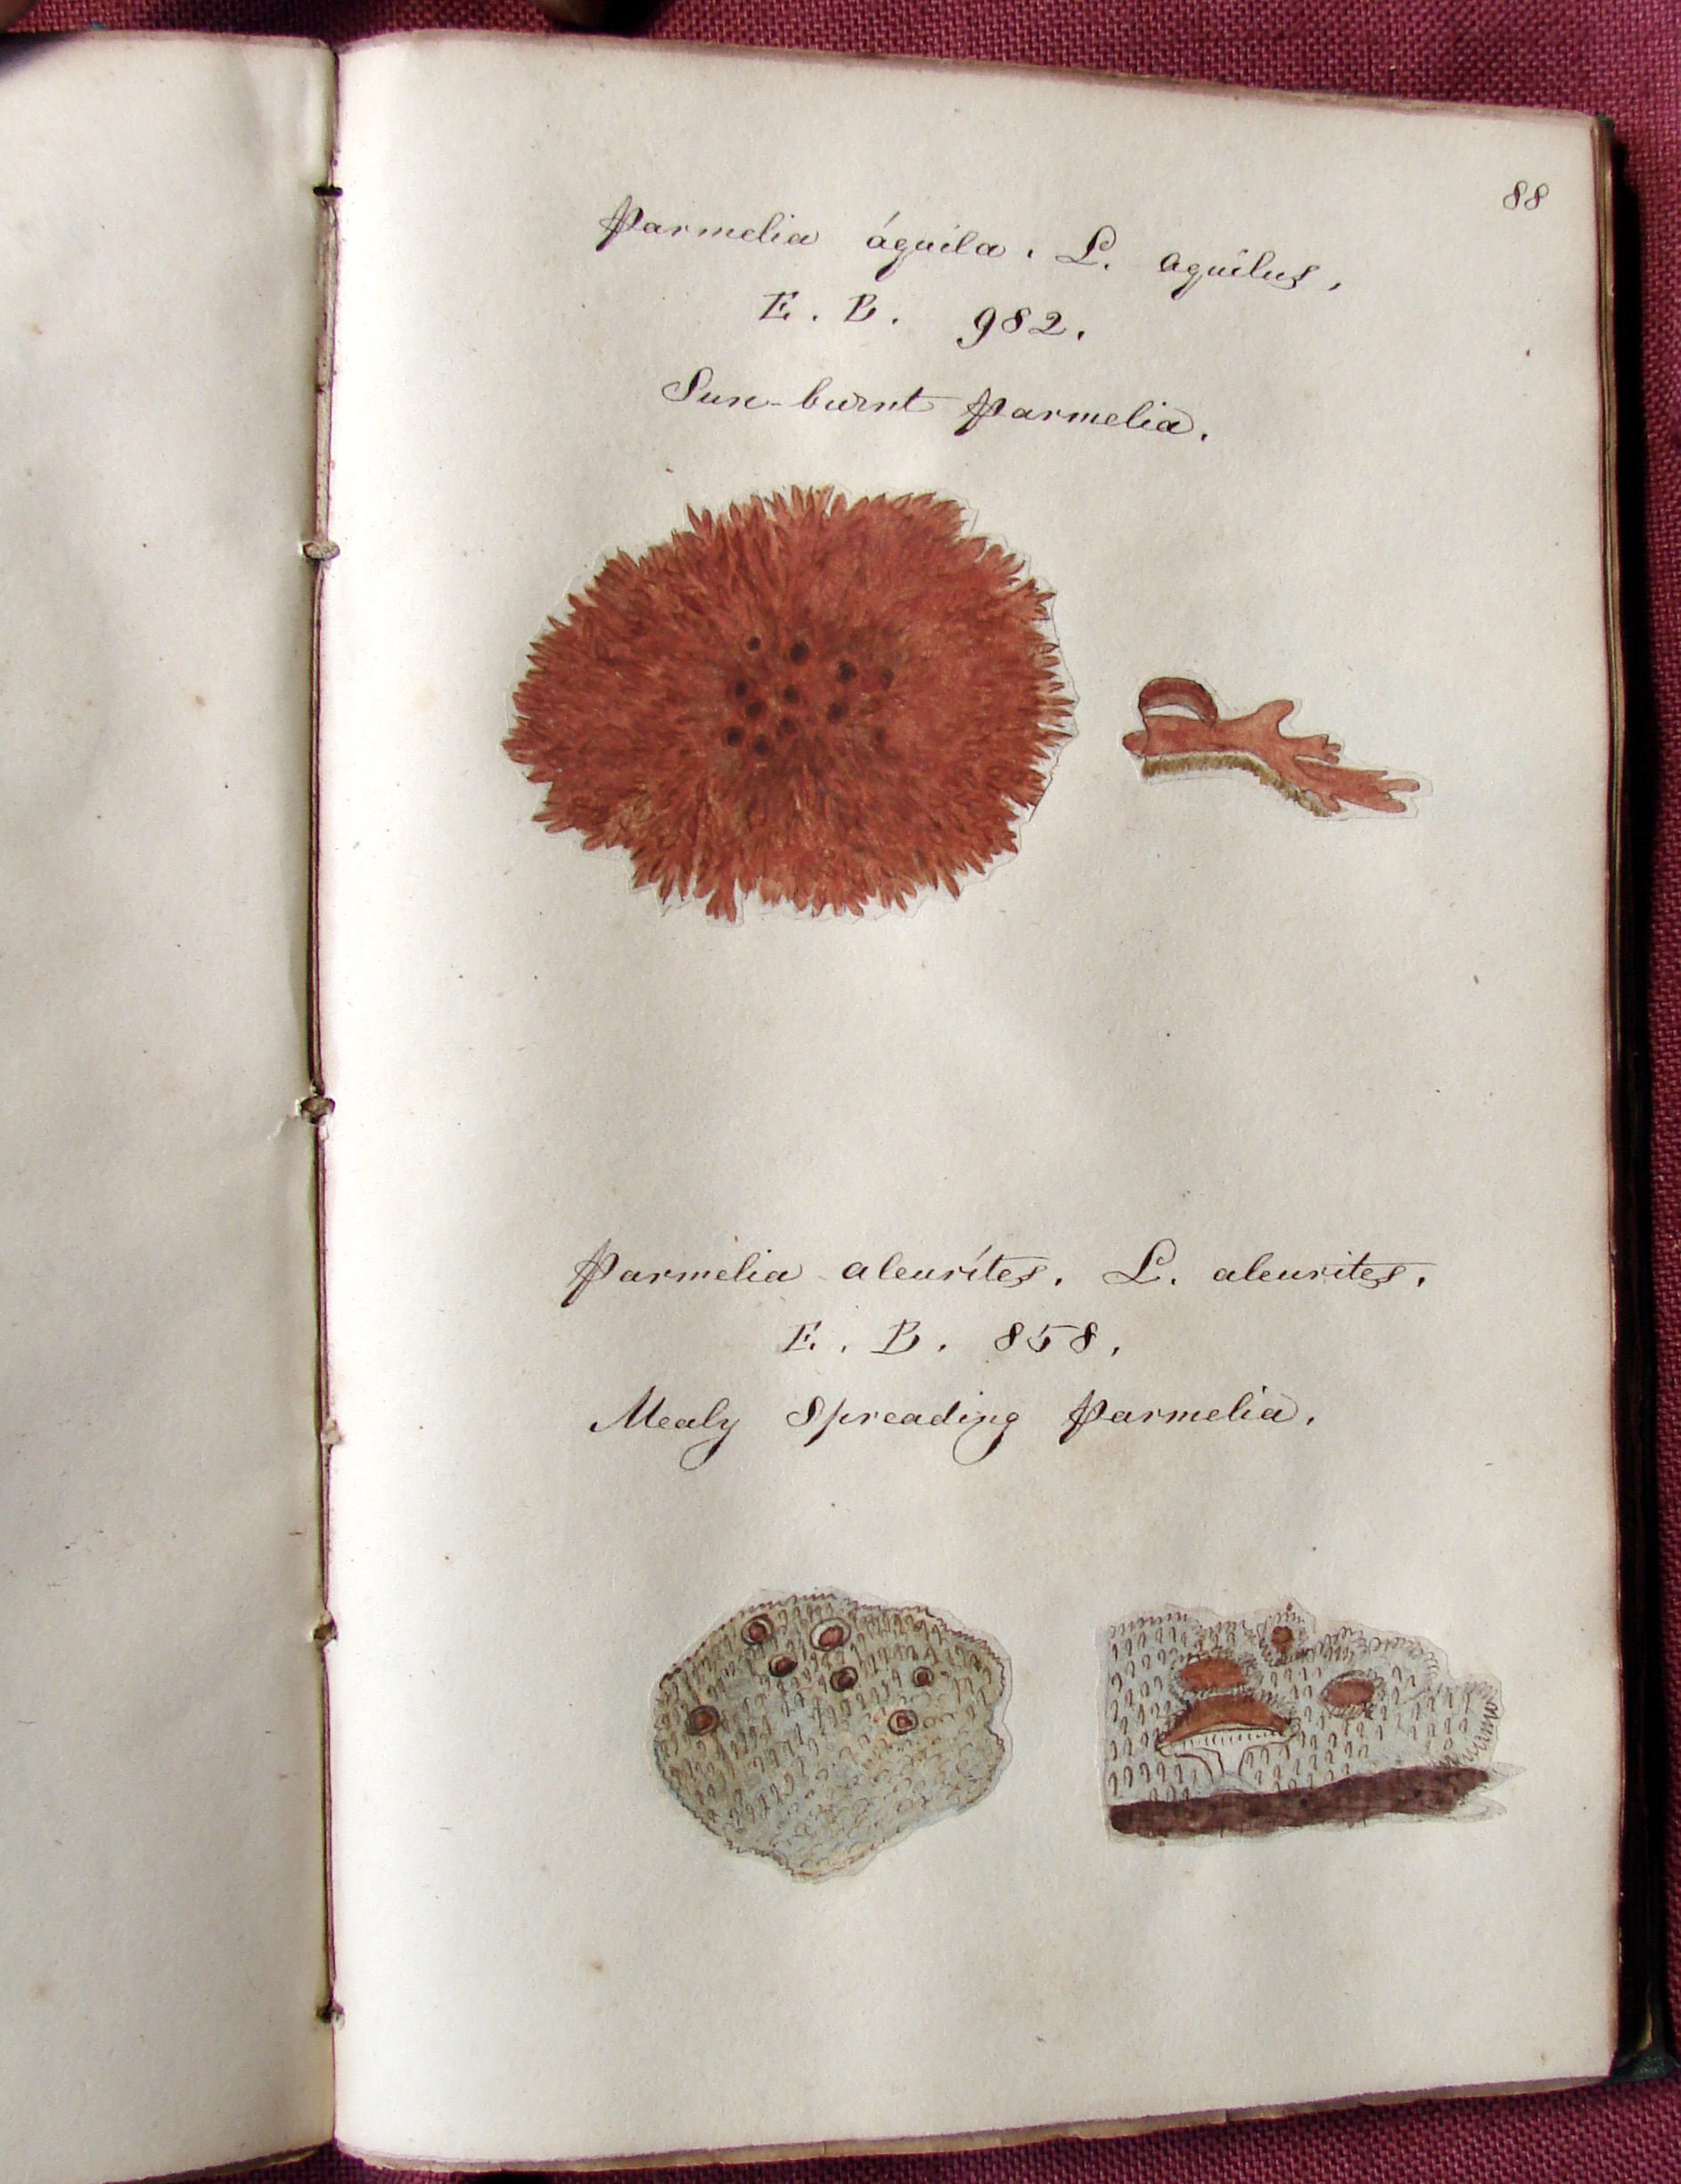 88
Parmelia áquila. L. aquilus,
E. B. 982.
Sun-burnt Parmelia.
Parmelia aleurítes. L. aleurites.
E. B. 858.
Mealy Spreading Parmelia.